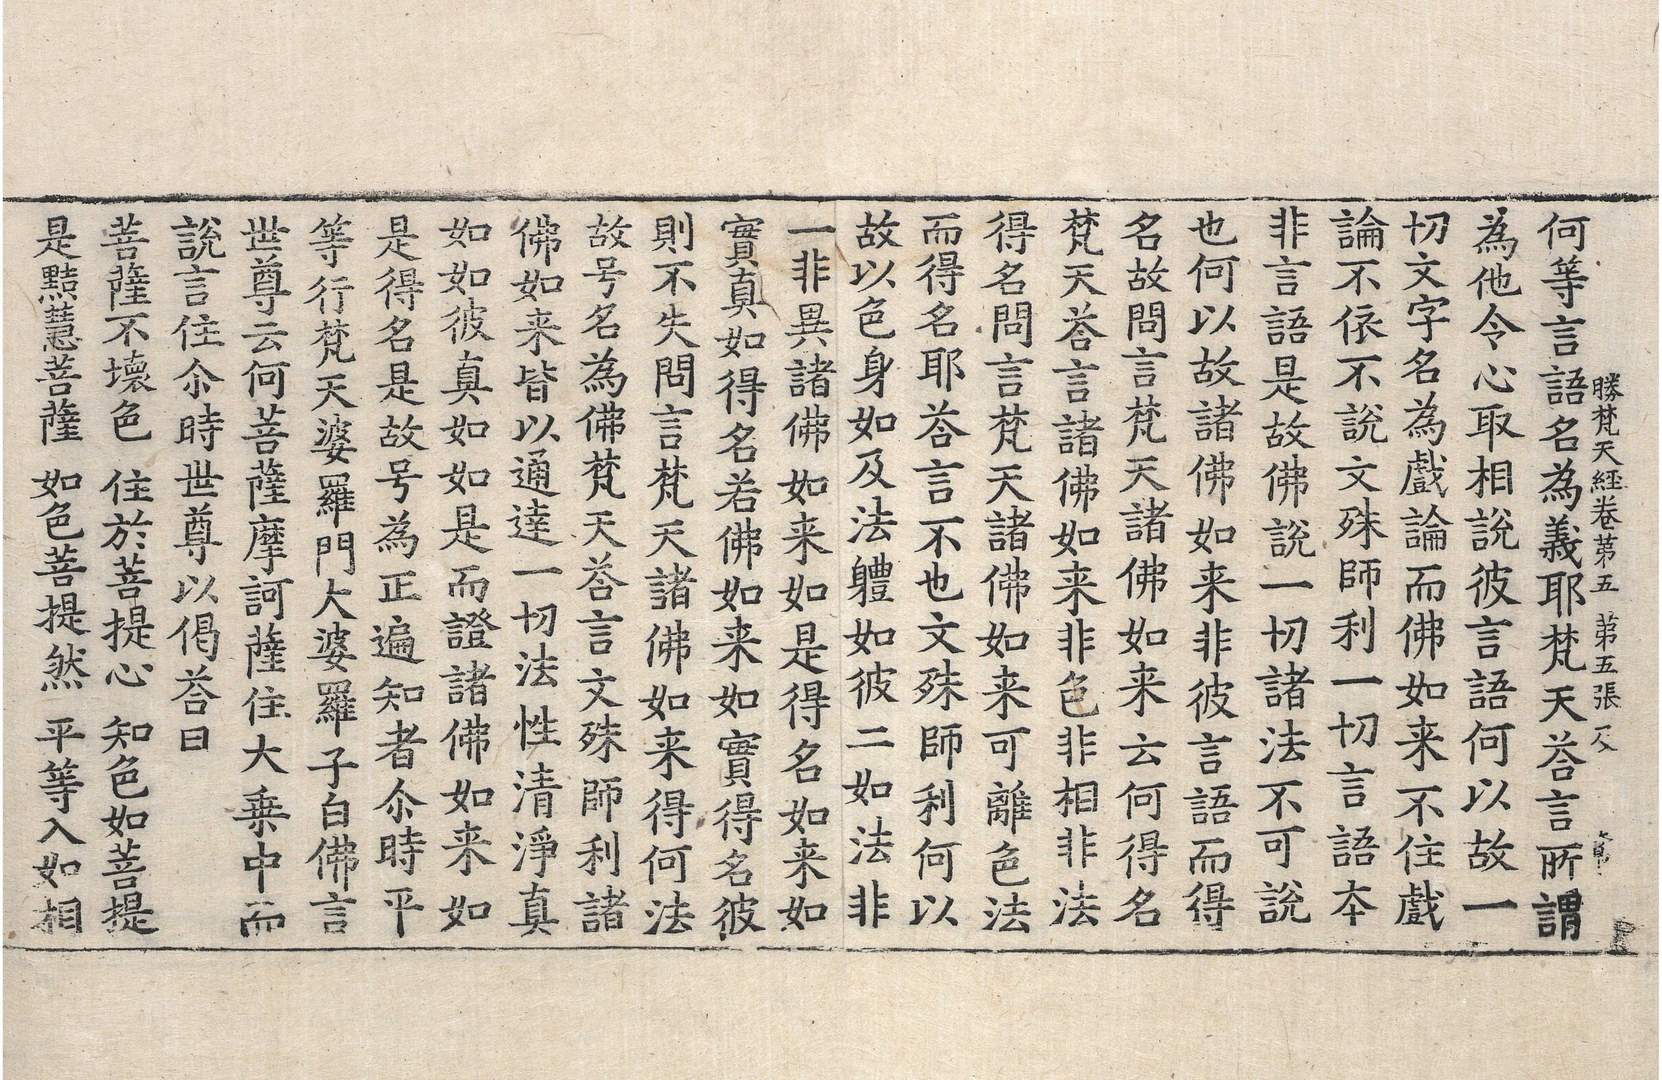 勝梵天經卷第五　第五張
何等言語名為義耶梵天荅言所謂
為他令心取相說彼言語何以故一
切文字名為戲論而佛如来不住戲
論不依不說文殊師利一切言語本
非言語是故佛說一切諸法不可說
也何以故諸佛如来非彼言語而得
名故問言梵天諸佛如来云何得名
梵天荅言諸佛如来非色非相非法
得名問言梵天諸佛如来可離色法
而得名耶荅言不也文殊師利何以
故以色身如及法軆如彼二如法非
一非異諸佛如来如是得名如来如
實真如得名若佛如来如實得名彼
則不失問言梵天諸佛如来得何法
故号名為佛梵天荅言文殊師利諸
佛如来皆以通達一切法性清淨真
如如彼真如如是而證諸佛如来如
是得名是故号為正遍知者尒時平
等行梵天婆羅門大婆羅子白佛言
世尊云何菩薩摩訶薩住大乗中而
說言住尒時世尊以偈荅曰
菩薩不壞色　住於菩提心　知色如菩提
是黠慧菩薩　如色菩提然　平等入如相